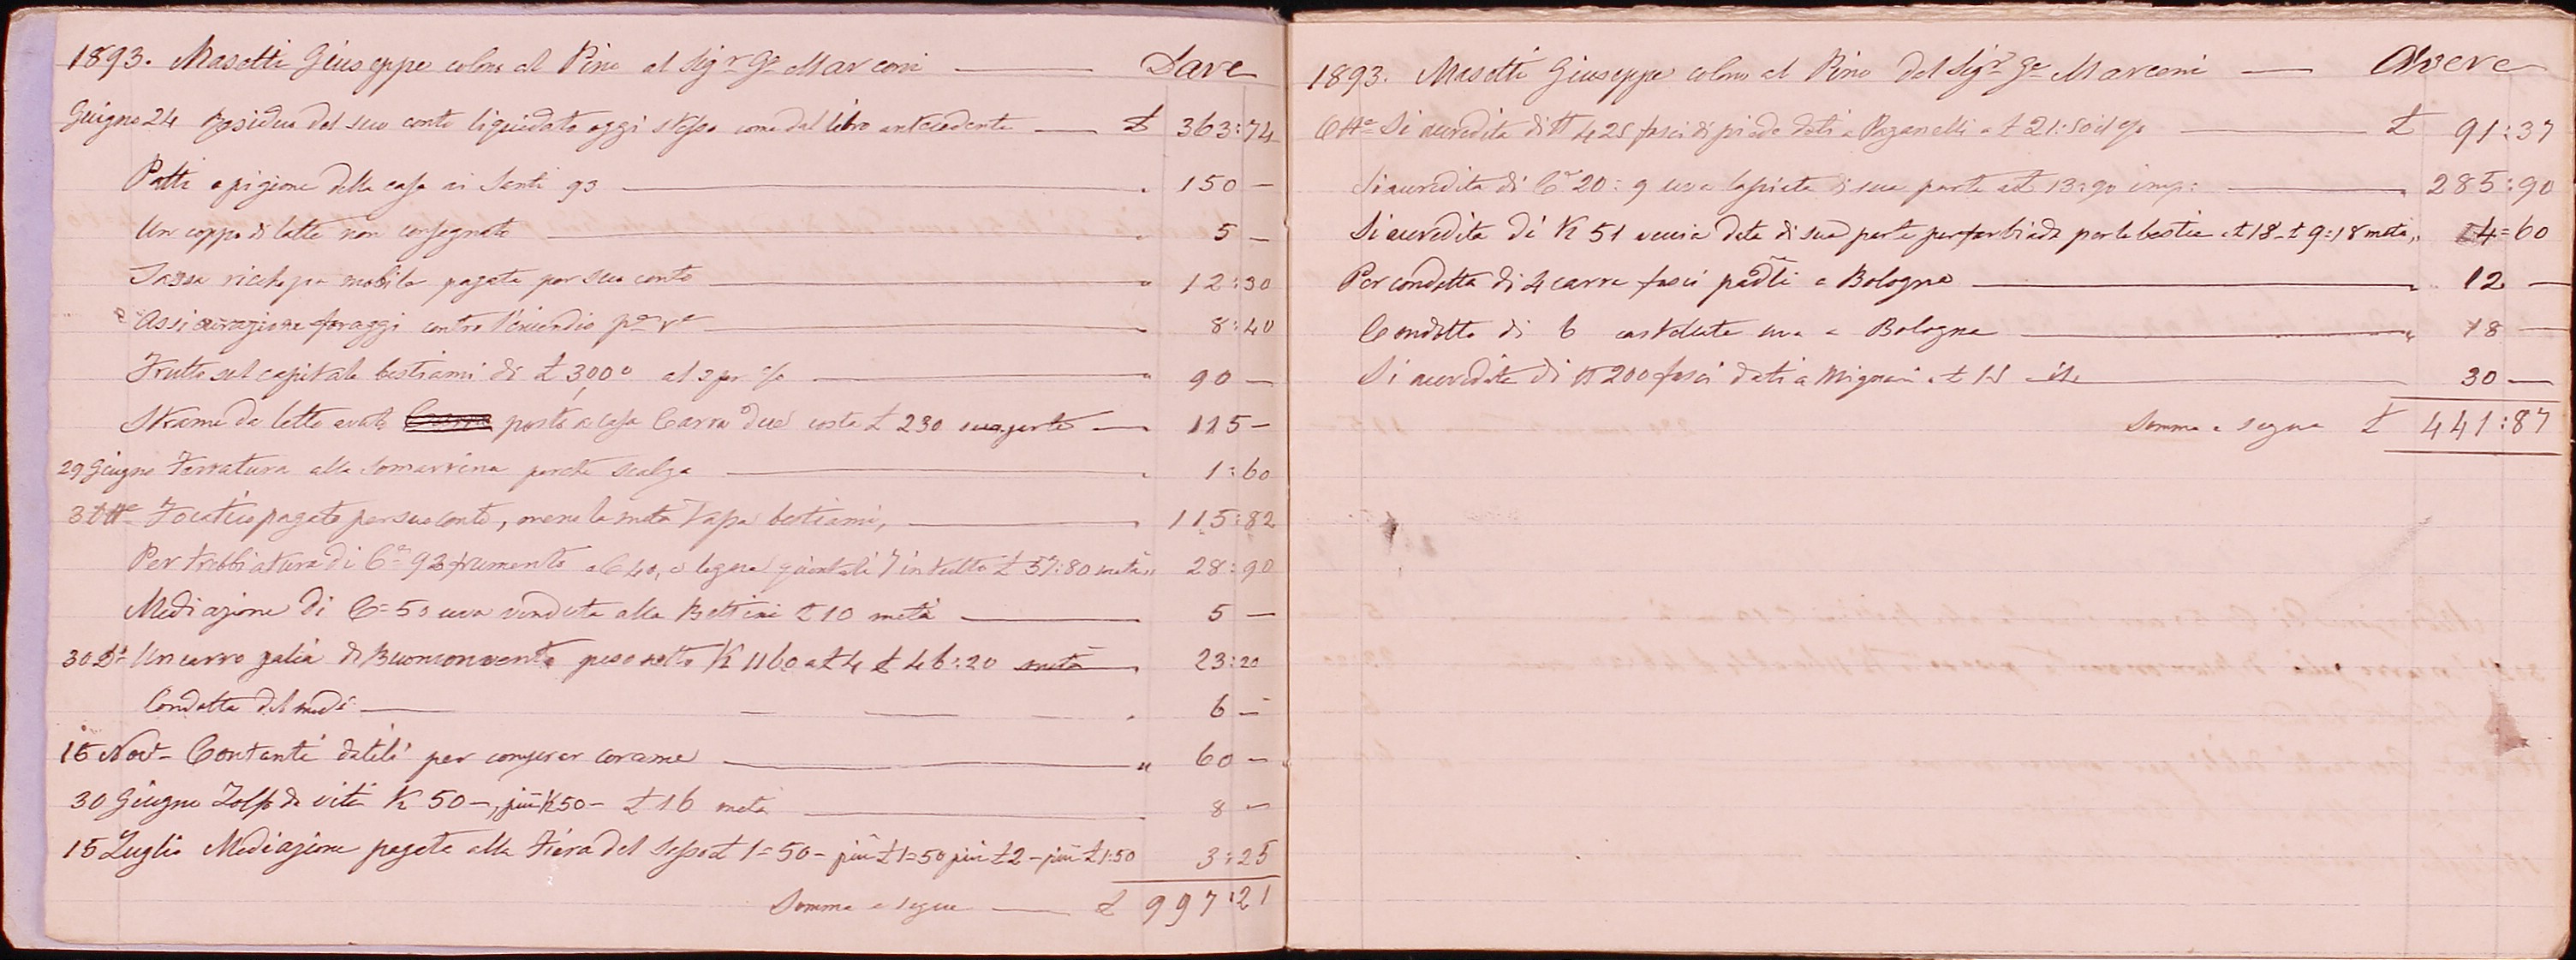 1893. Masotti Giuseppe colono al Pino al Sigr Ge Marconi — Dare
Giugno 24 Residuo del suo conto liquidato oggi stesso come dal libro antecedente — £ 363:74
Patti e pigione della casa ai Santi 93 — 150 —
Un coppo di latte non consegnato — 5 —
Tassa ricchezza mobile pagata per suo conto — 12:30
Assicurazione foraggi contro l'incendio — 8:40
Frutto sul capitale bestiami di £ 3,000 al 3 per % — 90 —
Strame da letto avuto posto a casa Carra due costa £ 230 sua parte — 115 —
29 Giugno Ferratura alla somarrina perchè scalza — 1:60
3 Focatico pagato per suo conto, meno la metà Tassa bestiami, — 115:82
Per trebbiatura di Ce 93 frumento a C 40, e legna quintali 7 in tutto £ 57:80 metà „ 28:90
Mediazione di C= 50 uva venduta alla Bettini £ 10 metà — 5 —
30 Do Un carro palia di Buonconvento peso netto K 1160 a £ 4 £ 46:20 metà 23:20
Condotta del med — 6 —
15 Nove Contanti datili per comprar corame — „ 60 —
30 Giugno Zolfo da viti K 50 —, più K 50 — £ 16 metà — 8 —
15 Luglio Mediazione pagata alla Fiera del £ 1=50 — più £ 1=50 più £ 2 — più £ 1:50 3:25
Somma e segue — £ 997:21
1893. Masotti Giuseppe colono al Pino del Sigr Ge Marconi — Avere
Si accredita di N 425 fasci di piede dati a Paganelli a £ 21:50 il % — £ 91:37
Si accredita di Ce 20:9 uva lasciata di sua parte a £ 13:90 — 285:90
Si accredita di K 51 data di sua parte per le bestie a £ 18 — £ 9:18 metà „ 4=60
Per condotta di 4 carra fasci a Bologna — 12 —
Condotta di 6 castellate uva a Bologna — 18 —
Si accredita di N 200 fasci dati a Mignani a £ 15 — 30 —
Somma e segue £ 441:87